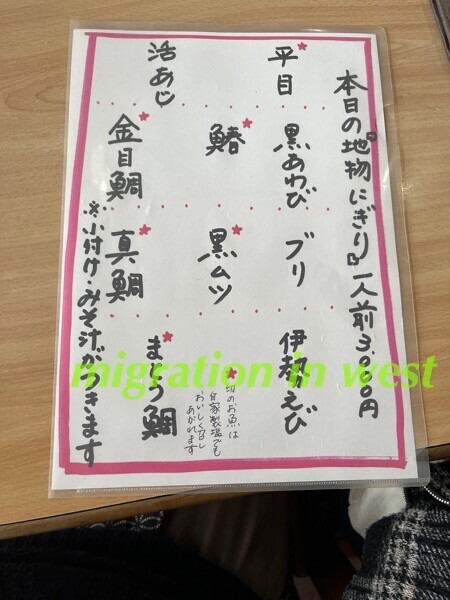 本日の『地物にぎり』一人前3,000円
平目*
黒あわび
ブリ
伊勢えび
鰆*
黒ムツ*
*印のお魚は
自家製塩でも
おいしく召し
あがれます
活あじ
金目鯛*
真鯛*
まとう鯛*
※小付け・みそ汁がつきます
migration in west